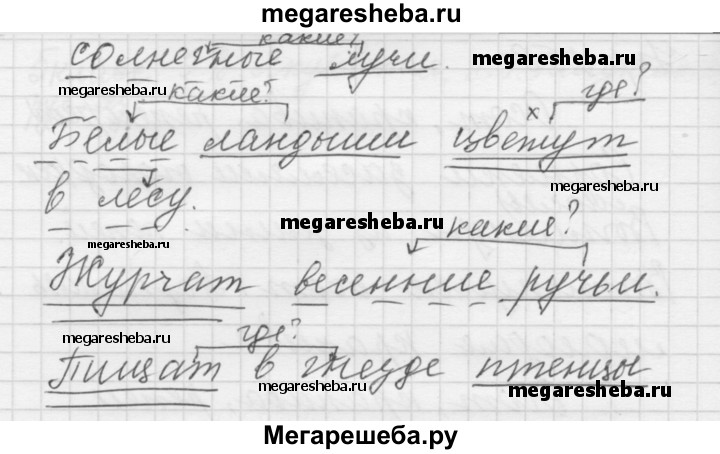 megaresheba.ru
какие?
солнечные лучи. megaresheba.ru
megaresheba.ru какие? где?
Белые ландыши х цветут megaresheba.ru
в лесу. megaresheba.ru
megaresheba.ru какие?
Журчат весенние ручьи.
megaresheba.ru где? megaresheba.ru
Пищат в гнезде птенцы
megaresheba.ru megaresheba.ru
Мегарешеба.ру